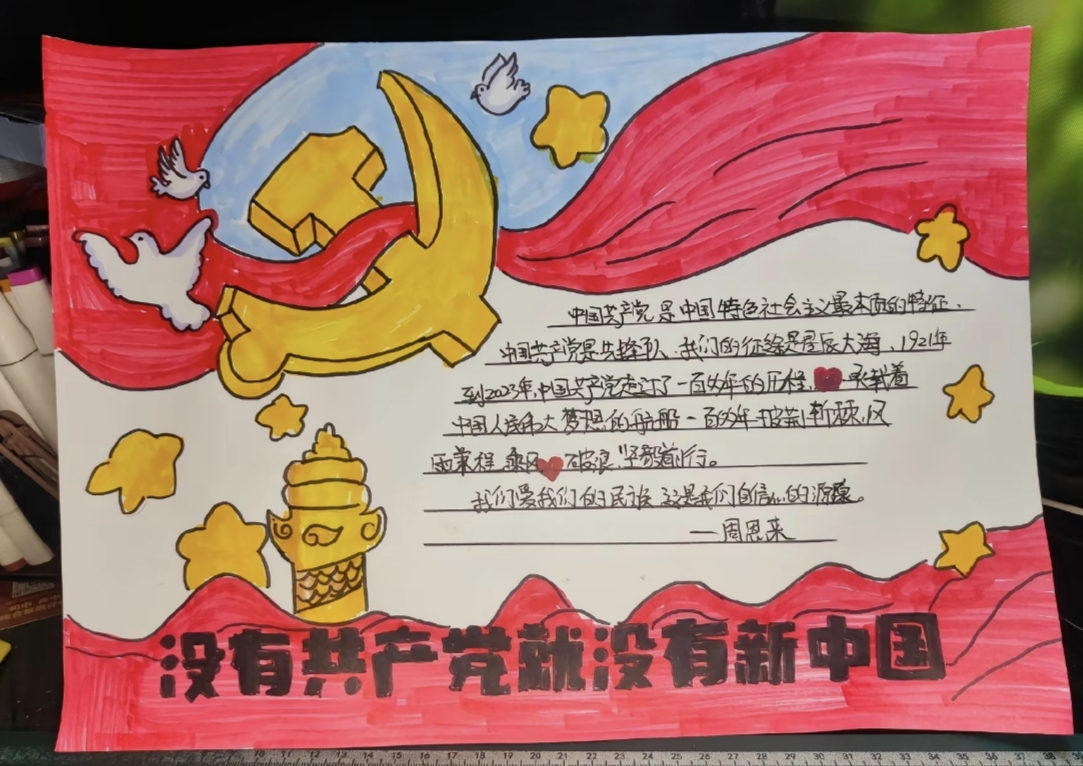 中国共产党是中国特色社会主义最本质的特征、
中国共产党是先锋队、我们的征途是星辰大海、1921年
到2023年,中国共产党走过了一百多年的历程, 承载着
中国人民伟大梦想的航船一百多年披荆斩棘,风
雨兼程,乘风 破浪,坚毅前行。
我们爱我们的民族 这是我们自信心的源泉。
—周恩来
没有共产党就没有新中国
10 11 12 13 14 15 16 17 18 19 20 21 22 23 24 25 26 27 28 29 30 31 32 33 34 35 36 37 38